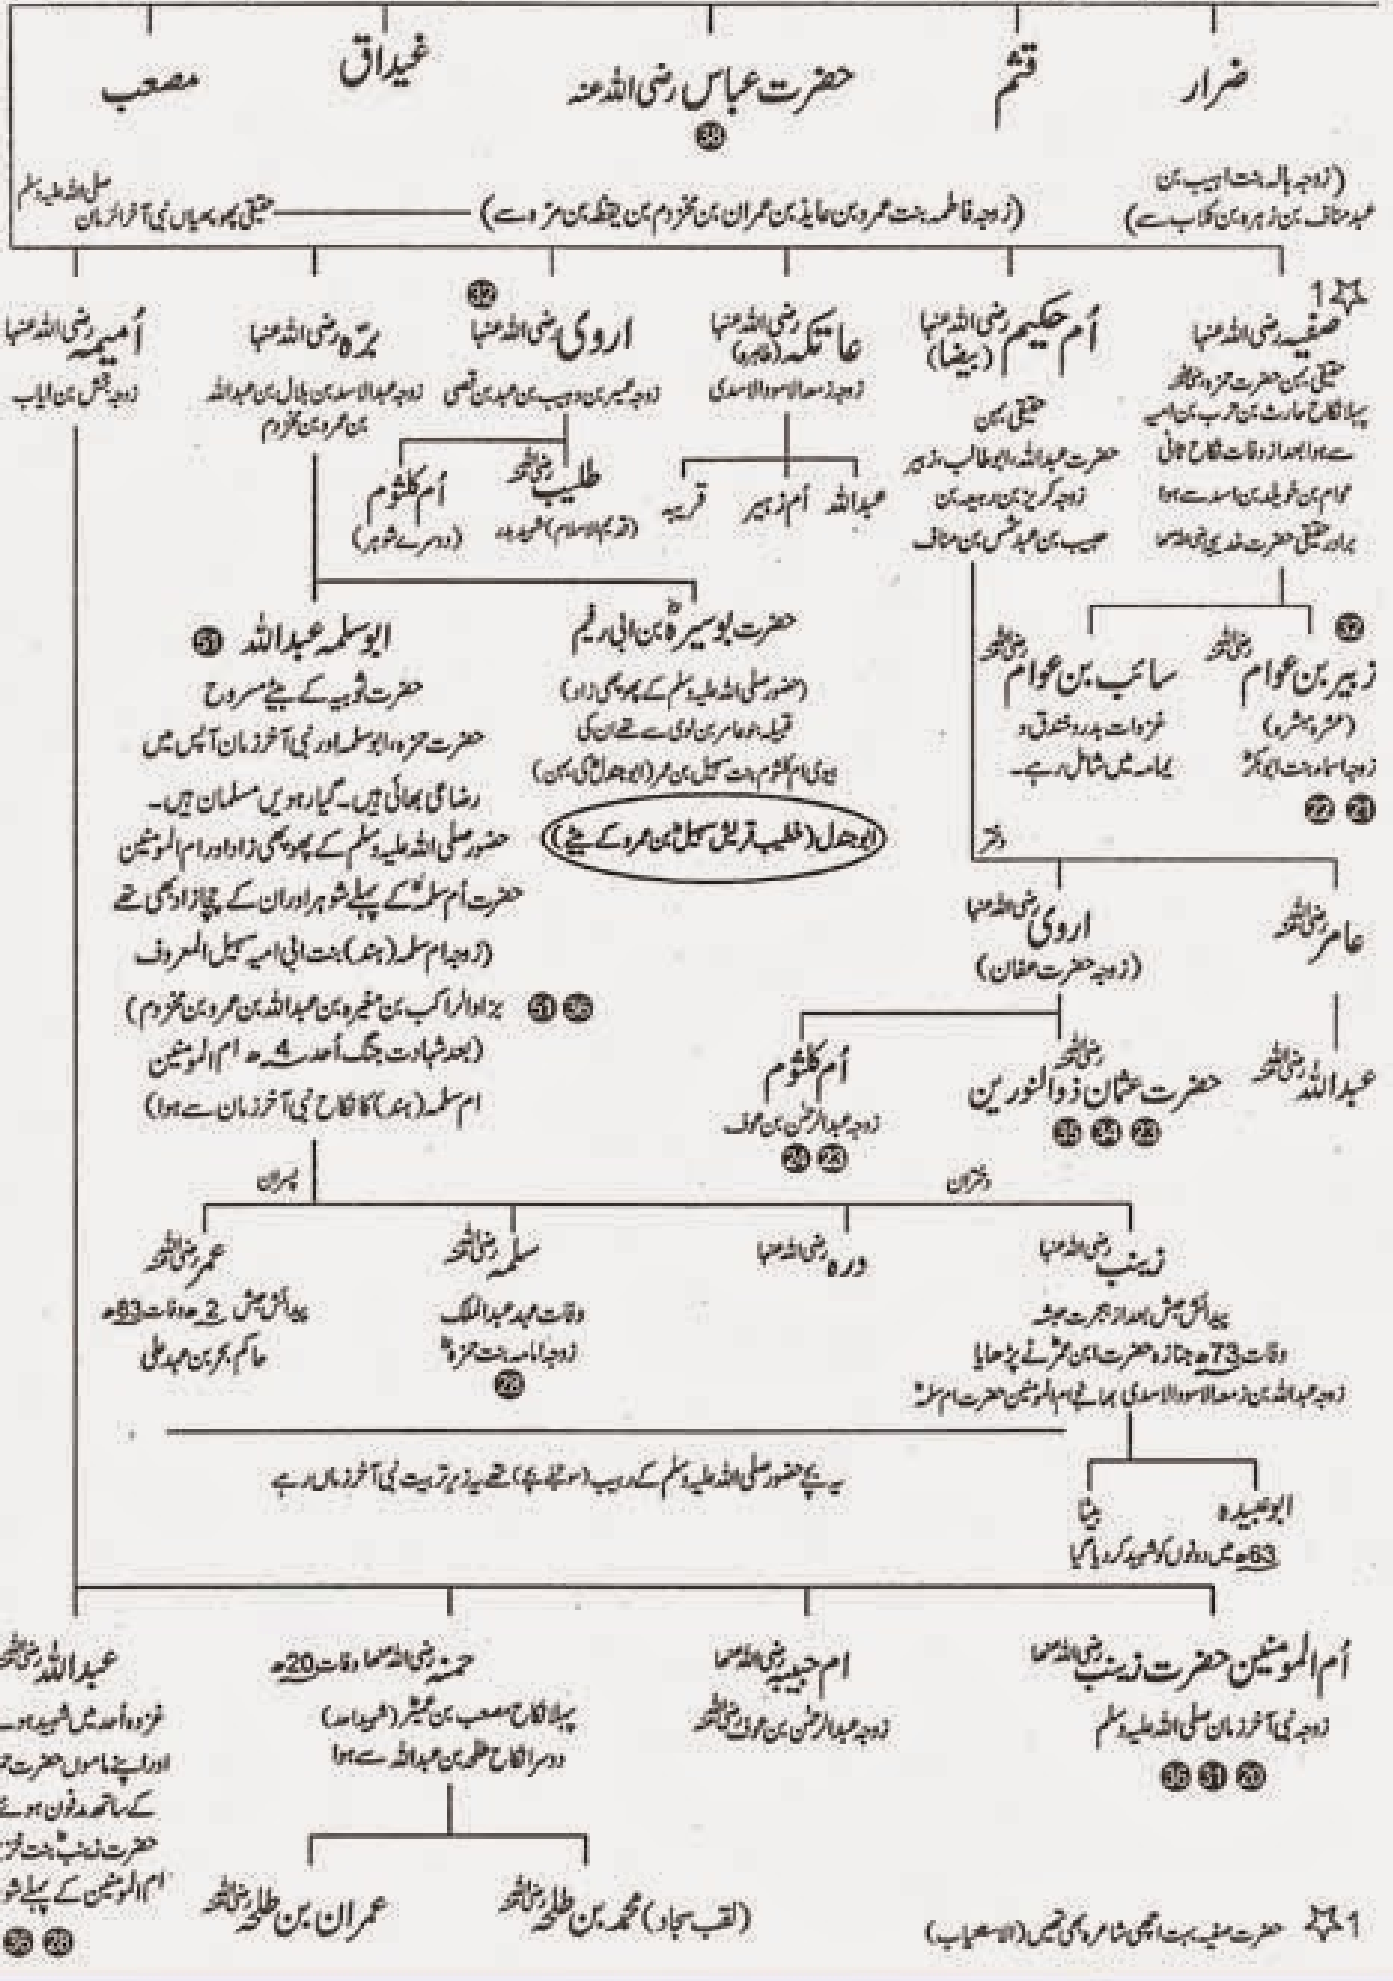 ضرار
قثم
حضرت عباس رضی اللہ عنہ
38
غیداق
مصعب
(زوجہ ہالہ بنت اہیب بن
عبد مناف بن زہرہ بن کلاب سے)
(زوجہ فاطمہ بنت عمرو بن عایذ بن عمران بن مخزوم بن یقظہ بن مرّہ سے)
صلی اللہ علیہ وسلم
حقیقی پھوپھیاں نبی آخرالزمان
1
صفیہ رضی اللہ عنہا
حقیقی بہن حضرت حمزہ رضی اللہ عنہ
پہلا نکاح حارث بن حرب بن امیہ
سے ہوا بعد از وفات نکاح ثانی
عوام بن خویلد بن اسد سے ہوا
برادر حقیقی حضرت خدیجہ رضی اللہ عنہا
اُم حکیم رضی اللہ عنہا
(بیضا)
حقیقی بہن
حضرت عبداللہ، ابوطالب، زبیر
زوجہ کریز بن ربیعہ بن
حبیب بن عبد شمس بن مناف
عاتکہ رضی اللہ عنہا
(طاہرہ)
زوجہ زمعہ الاسود الاسدی
عبداللہ
اُم زہیر
قریبہ
32
اروی رضی اللہ عنہا
زوجہ عمیر بن وہیب بن عبد بن قصی
طلیب رضی اللہ عنہ
(قدیم الاسلام) شہید بدر
اُم کلثوم
(دوسرے شوہر)
برّہ رضی اللہ عنہا
زوجہ عبدالاسد بن ہلال بن عبداللہ
بن عمرو بن مخزوم
اُمیمہ رضی اللہ عنہا
زوجہ جحش بن ایاب
32
زبیر بن عوام رضی اللہ عنہ
(عشرہ مبشرہ)
زوجہ اسماء بنت ابوبکرؓ
22 21
سائب بن عوام رضی اللہ عنہ
غزوات بدر و خندق و
یمامہ میں شامل رہے۔
حضرت بوسیرہؓ بن ابی رقیم
(حضور صلی اللہ علیہ وسلم کے پھوپھی زاد)
قبیلہ بنو عامر بن لوی سے تھے ان کی
بیوی ام کلثوم بنت سہیل بن عمر (ابوجندلؓ کی بہن)
ابوجندل (خطیب قریش سہیلؓ بن عمرو کے بیٹے)
ابوسلمہ عبداللہ 51
حضرت ثوبیہ کے بیٹے مسروح
حضرت حمزہ، ابوسلمہ اور نبی آخرزمان آپس میں
رضاعی بھائی ہیں۔ گیارہویں مسلمان ہیں۔
حضور صلی اللہ علیہ وسلم کے پھوپھی زاد اور ام المومنین
حضرت اُم سلمہؓ کے پہلے شوہر اور ان کے چچا زاد بھی تھے
(زوجہ ام سلمہ (ہند) بنت ابی امیہ سہیل المعروف
بزاد الراکب بن مغیرہ بن عبداللہ بن عمرو بن مخزوم) 51 36
(بعد شہادت جنگ اُحد 4ھ ام المومنین
ام سلمہ (ہند) کا نکاح نبی آخرزمان سے ہوا)
دختر
عامر رضی اللہ عنہ
عبداللہ رضی اللہ عنہ
اروی رضی اللہ عنہا
(زوجہ حضرت عفان)
حضرت عثمان ذوالنورین رضی اللہ عنہ
35 34 23
اُم کلثوم
زوجہ عبدالرحمٰن بن عوف
24 23
دختران
پسران
زینب رضی اللہ عنہا
پیدائش حبش بعد از ہجرت حبشہ
وفات 73ھ جنازہ حضرت ابن عمرؓ نے پڑھایا
زوجہ عبداللہ بن زمعہ الاسود الاسدی بھانجے ام المومنین حضرت ام سلمہؓ
درہ رضی اللہ عنہا
سلمہ رضی اللہ عنہ
وفات عہد عبدالملک
زوجہ امامہ بنت حمزہؓ
28
عمر رضی اللہ عنہ
پیدائش حبش 2ھ وفات 83ھ
حاکم بحرین عہد علی
یہ بچے حضور صلی اللہ علیہ وسلم کے ربیب (سوتیلے بچے) تھے یہ زیر تربیت نبی آخرزماں رہے
ابوعبیدہ
بیٹا
63ھ میں دونوں کو شہید کر دیا گیا
اُم المومنین حضرت زینب رضی اللہ عنہا
زوجہ نبی آخرزمان صلی اللہ علیہ وسلم
36 31 20
ام حبیبہ رضی اللہ عنہا
زوجہ عبدالرحمٰن بن عوف رضی اللہ عنہ
حمنہ رضی اللہ عنہا وفات 20ھ
پہلا نکاح مصعب بن عمیرؓ (شہید احد)
دوسرا نکاح طلحہ بن عبداللہ سے ہوا
(لقب سجاد) محمد بن طلحہ رضی اللہ عنہ
عمران بن طلحہ رضی اللہ عنہ
عبداللہ رضی اللہ عنہ
غزوہ اُحد میں شہید ہوئے
اور اپنے ماموں حضرت
کے ساتھ مدفون ہوئے
حضرت زینبؓ بنت
ام المومنین کے پہلے
36 28
1 حضرت صفیہ بہت اچھی شاعرہ بھی تھیں (الاستعیاب)